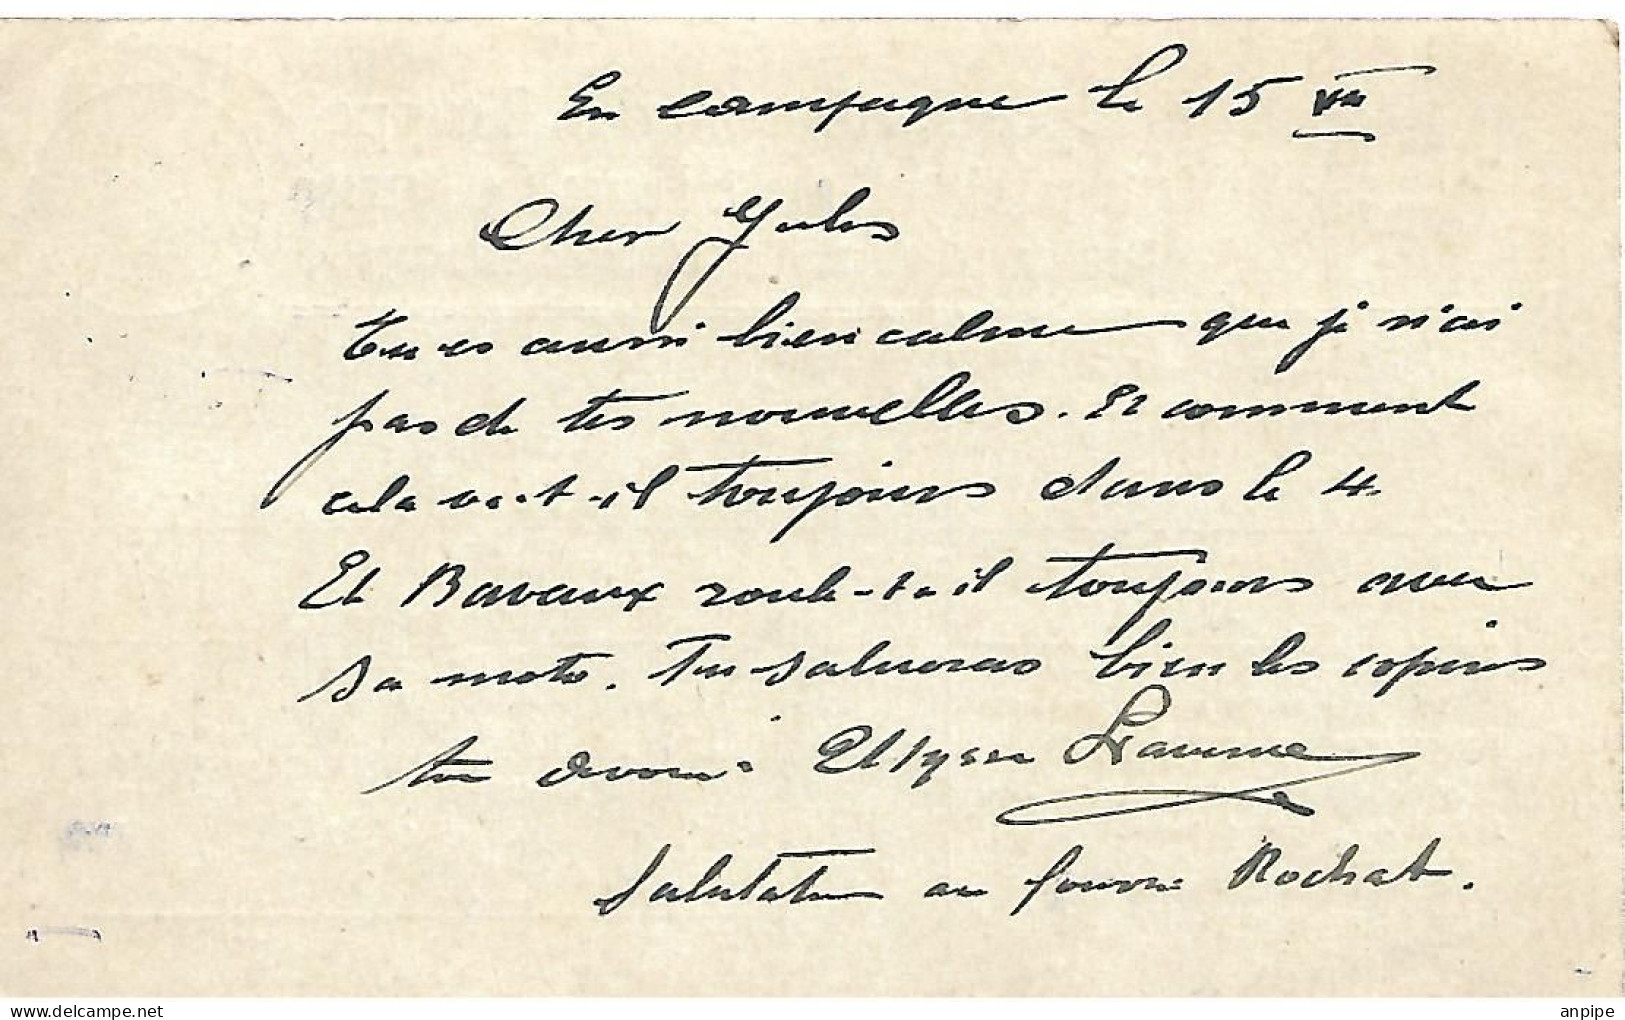 En campagne le 15 VII
Cher Jules
Tu es aussi bien calme que je n'ai
pas de tes nouvelles. Et comment
cela va-t-il toujours dans le 4.
Et Bavaux roule-t-il toujours avec
sa moto. Tu salueras bien les copins
ton Ulysse
Salutation au Rochat.
www.delcampe.net
anpipe